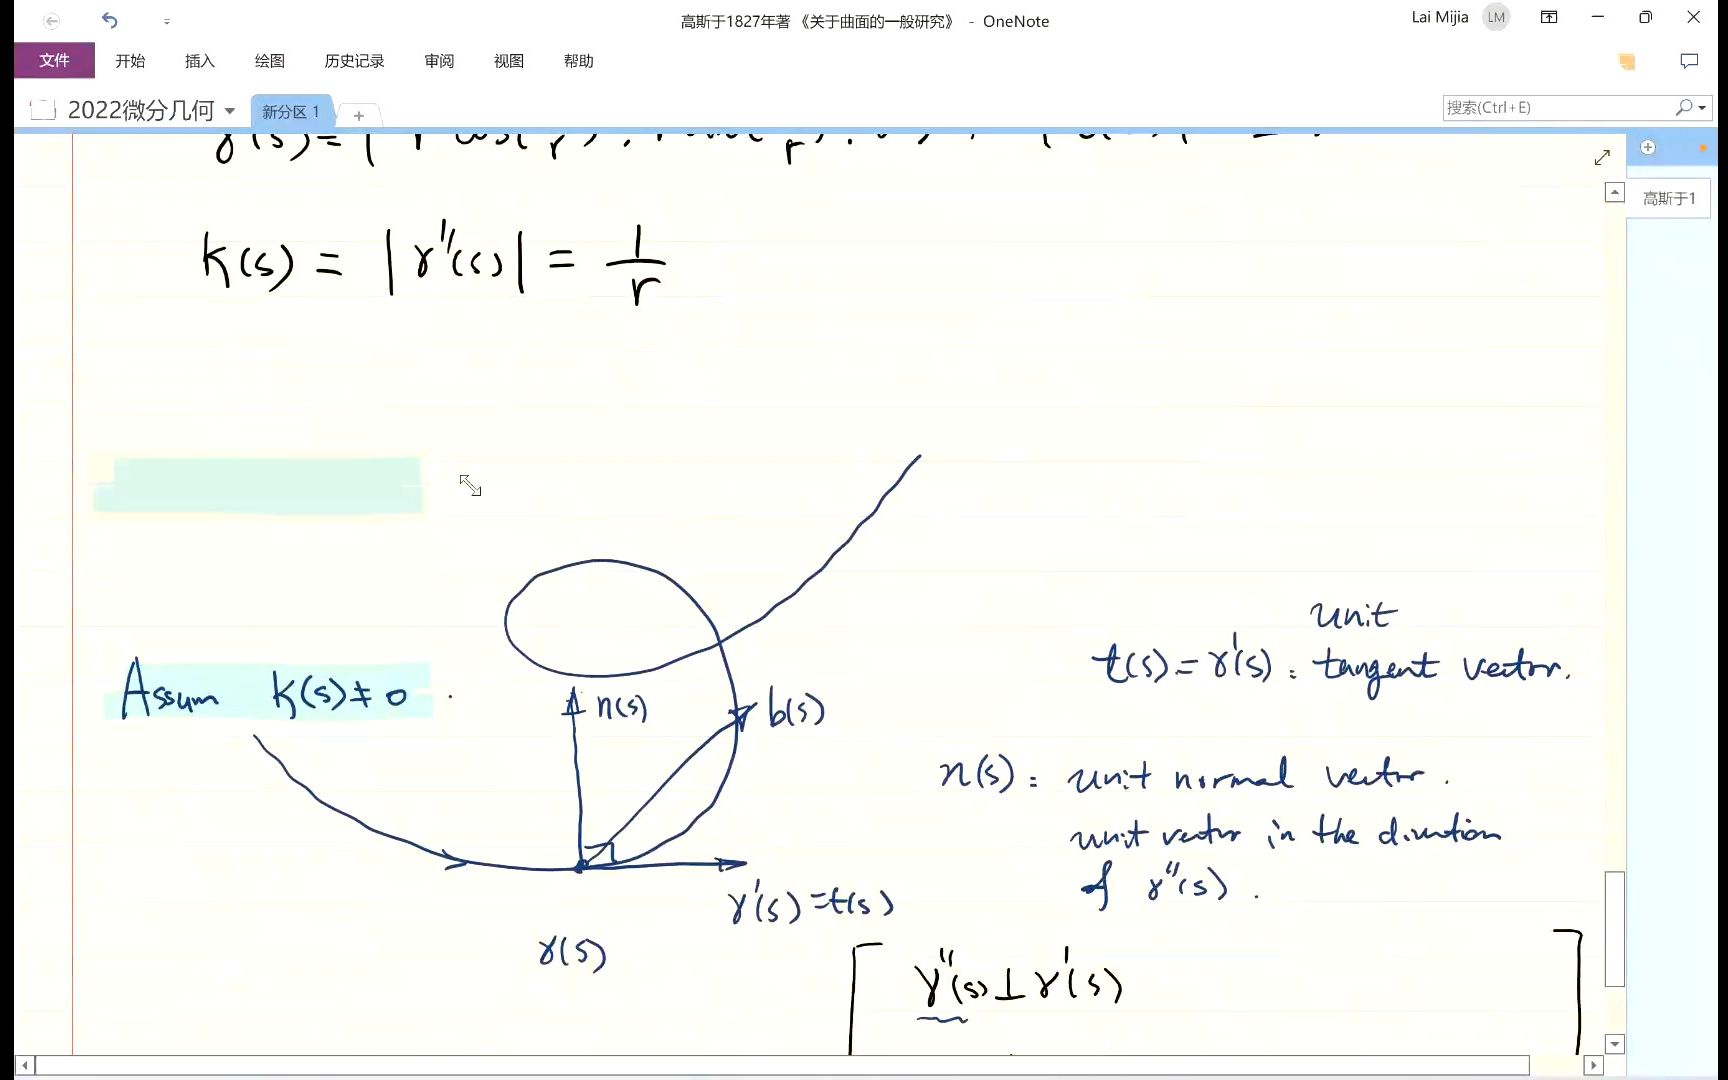 高斯于1827年著 《关于曲面的一般研究》 - OneNote
Lai Mijia LM
文件 开始 插入 绘图 历史记录 审阅 视图 帮助
2022微分几何 新分区 1
搜索(Ctrl+E)
高斯于1
k(s) = |γ''(s)| = 1/r
Assum k(s)≠0 .
n(s)
b(s)
γ'(s)=t(s)
γ(s)
unit
t(s)=γ'(s) : tangent vector.
n(s) : unit normal vector.
unit vector in the direction
of γ''(s) .
γ''(s)⊥γ'(s)